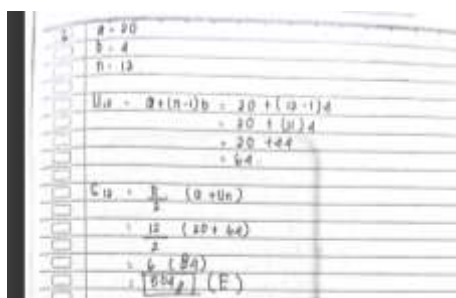 a = 20
b = 4
n = 12
U12 = a+(n-1)b = 20 + (12-1)4
= 20 + (11)4
= 20 + 44
= 64
S12 = n/2 (a + Un)
= 12/2 (20 + 64)
= 6 (84)
= 504 (E)